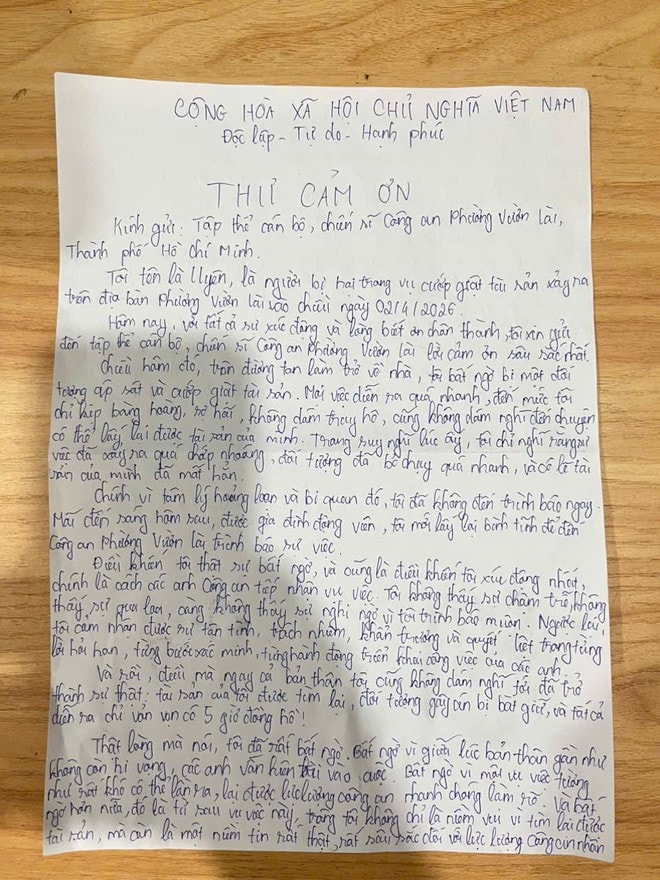 CỘNG HÒA XÃ HỘI CHỦ NGHĨA VIỆT NAM
Độc lập - Tự do - Hạnh phúc
THƯ CẢM ƠN
Kính gửi: Tập thể cán bộ, chiến sĩ Công an Phường Vườn lài,
Thành phố Hồ Chí Minh.
Tôi tên là Uyên, là người bị hại trong vụ cướp giật tài sản xảy ra
trên địa bàn Phường Vườn lài vào chiều ngày 02/4/2026.
Hôm nay, với tất cả sự xúc động và lòng biết ơn chân thành, tôi xin gửi
đến tập thể cán bộ, chiến sĩ Công an Phường Vườn lài lời cảm ơn sâu sắc nhất.
Chiều hôm đó, trên đường tan làm trở về nhà, tôi bất ngờ bị một đối
tượng áp sát và cướp giật tài sản. Mọi việc diễn ra quá nhanh, đến mức tôi
chỉ kịp bàng hoàng, sợ hãi, không dám truy hô, cũng không dám nghĩ đến chuyện
có thể lấy lại được tài sản của mình. Trong suy nghĩ lúc ấy, tôi chỉ nghĩ rằng sự
việc đã xảy ra quá chớp nhoáng, đối tượng đã bỏ chạy quá nhanh, và có lẽ tài
sản của mình đã mất hẳn.
Chính vì tâm lý hoang loạn và bi quan đó, tôi đã không đến trình báo ngay.
Mãi đến sáng hôm sau, được gia đình động viên, tôi mới lấy lại bình tĩnh để đến
Công an Phường Vườn lài trình báo sự việc.
Điều khiến tôi thật sự bất ngờ, và cũng là điều khiến tôi xúc động nhất,
chính là cách các anh Công an tiếp nhận vụ việc. Tôi không thấy sự chậm trễ, không
thấy sự qua loa, càng không thấy sự nghi ngờ vì tôi trình báo muộn. Ngược lại,
tôi cảm nhận được sự tận tình, trách nhiệm, khẩn trương và quyết liệt trong từng
lời hỏi han, từng bước xác minh, từng hành động triển khai công việc của các anh.
Và rồi, điều mà ngay cả bản thân tôi cũng không dám nghĩ tới đã trở
thành sự thật: tài sản của tôi được tìm lại, đối tượng gây án bị bắt giữ, và tất cả
diễn ra chỉ vỏn vẹn có 5 giờ đồng hồ!
Thật lòng mà nói, tôi đã rất bất ngờ. Bất ngờ vì giữa lúc bản thân gần như
không còn hi vọng, các anh vẫn kiên trì vào cuộc. Bất ngờ vì một vụ việc tưởng
như rất khó có thể lần ra, lại được lực lượng công an nhanh chóng làm rõ. Và bất
ngờ hơn nữa, đó là từ sau vụ việc này, trong tôi không chỉ là niềm vui vì tìm lại được
tài sản, mà còn là một niềm tin rất thật, rất sâu sắc đối với lực lượng Công an nhân